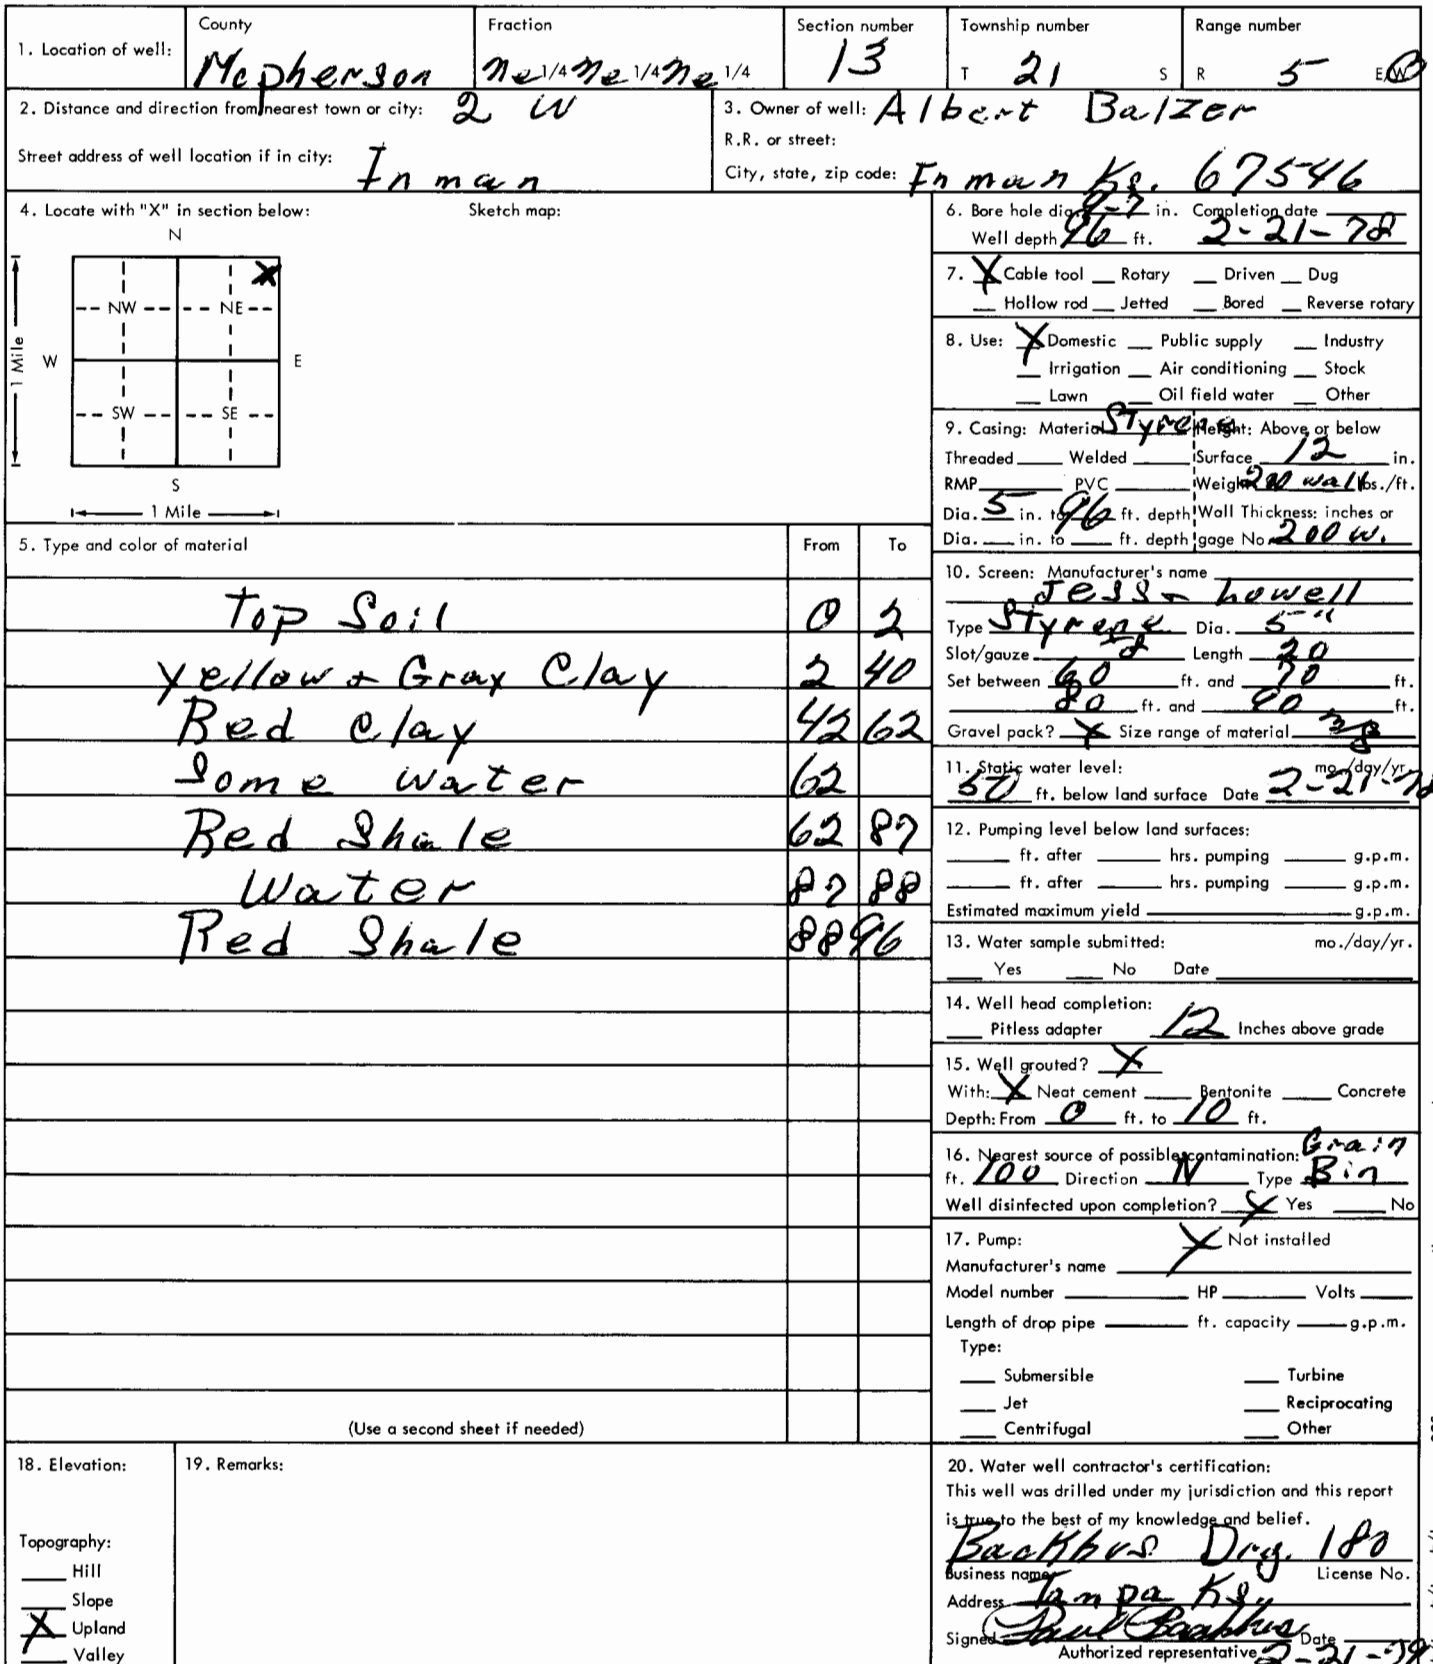 County Fraction Section number Township number Range number
1. Location of well: Mcpherson ne 1/4 ne 1/4 ne 1/4 13 T 21 S R 5 E/W
2. Distance and direction from nearest town or city: 2 W
Street address of well location if in city: Inman
3. Owner of well: Albert Balzer
R.R. or street:
City, state, zip code: Inman Ks. 67546
4. Locate with "X" in section below: Sketch map:
N
X
NW NE
W E
1 Mile
SW SE
S
1 Mile
5. Type and color of material From To
Top Soil 0 2
Yellow + Gray Clay 2 40
Red Clay 42 62
Some water 62
Red Shale 62 87
Water 87 88
Red Shale 88 96
(Use a second sheet if needed)
6. Bore hole dia. 9-7 in. Completion date
Well depth 96 ft. 2-21-78
7. X Cable tool Rotary Driven Dug
Hollow rod Jetted Bored Reverse rotary
8. Use: X Domestic Public supply Industry
Irrigation Air conditioning Stock
Lawn Oil field water Other
9. Casing: Material Styrene Height: Above or below
Threaded Welded Surface 12 in.
RMP PVC Weight 200 wall lbs./ft.
Dia. 5 in. to 96 ft. depth Wall Thickness: inches or
Dia. in. to ft. depth gage No. 200 W.
10. Screen: Manufacturer's name
Jess + Lowell
Type Styrene Dia. 5"
Slot/gauze 8 Length 20
Set between 60 ft. and 70 ft.
80 ft. and 90 ft.
Gravel pack? X Size range of material 3/8
11. Static water level: mo./day/yr.
50 ft. below land surface Date 2-21-78
12. Pumping level below land surfaces:
ft. after hrs. pumping g.p.m.
ft. after hrs. pumping g.p.m.
Estimated maximum yield g.p.m.
13. Water sample submitted: mo./day/yr.
Yes No Date
14. Well head completion:
Pitless adapter 12 Inches above grade
15. Well grouted? X
With: X Neat cement Bentonite Concrete
Depth: From 0 ft. to 10 ft.
16. Nearest source of possible contamination: Grain
ft. 100 Direction N Type Bin
Well disinfected upon completion? X Yes No
17. Pump: X Not installed
Manufacturer's name
Model number HP Volts
Length of drop pipe ft. capacity g.p.m.
Type:
Submersible Turbine
Jet Reciprocating
Centrifugal Other
18. Elevation:
Topography:
Hill
Slope
X Upland
Valley
19. Remarks:
20. Water well contractor's certification:
This well was drilled under my jurisdiction and this report
is true to the best of my knowledge and belief.
Backhus Drg. 180
Business name License No.
Address Tampa Ks.
Signed Paul Backhus Date
Authorized representative 2-21-78